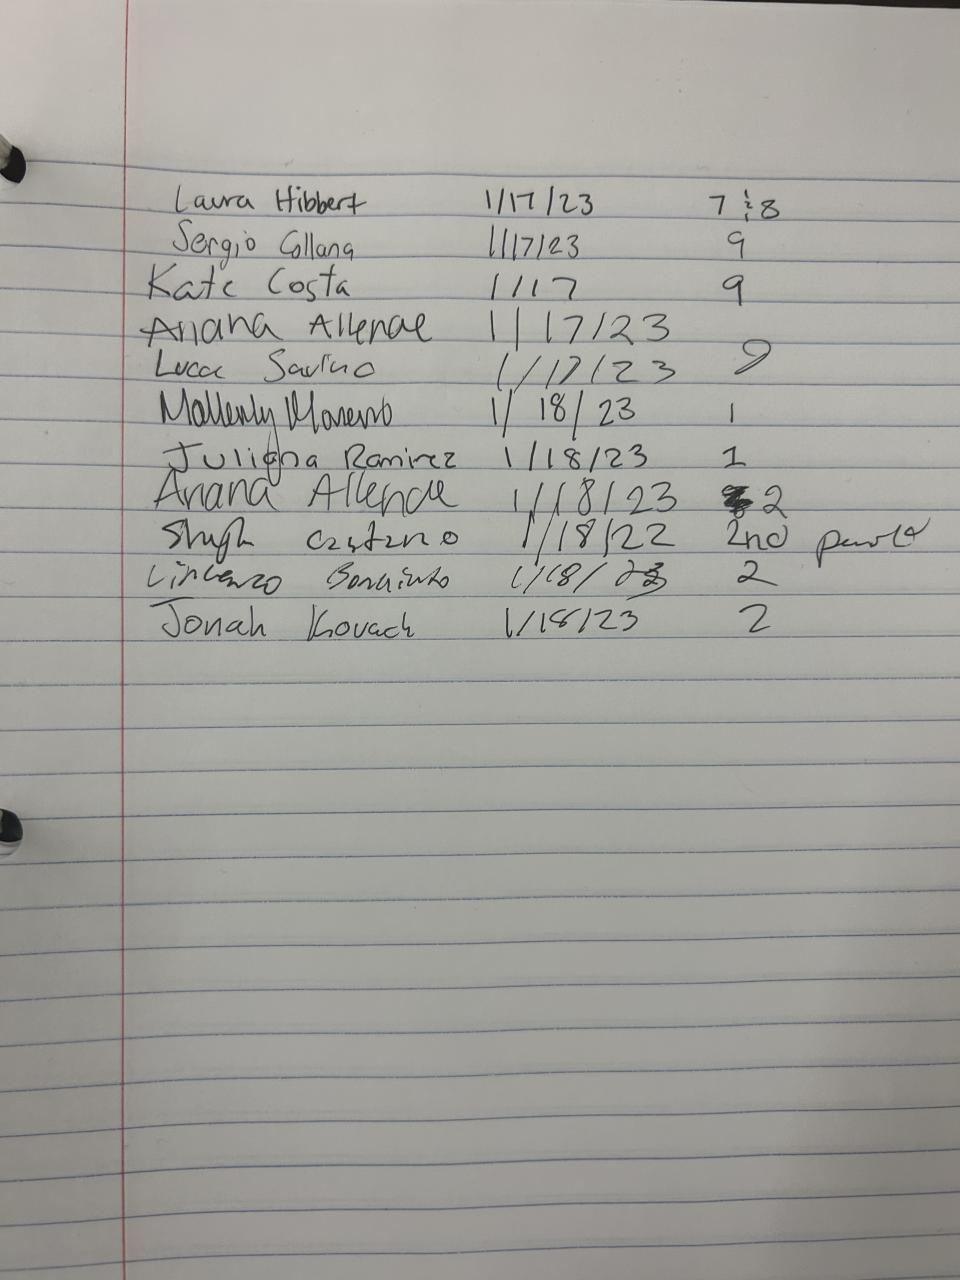 Laura Hibbert 1/17/23 7 & 8
Sergio Collana 1/17/23 9
Kate Costa 1/17 9
Ariana Allende 1/17/23
Lucca Savino 1/17/23 9
Moreno 1/18/23 1
Juligna Ramirez 1/18/23 1
Ariana Allende 1/18/23 2
1/18/22 2nd
1/18/23 2
Jonah Kovach 1/18/23 2